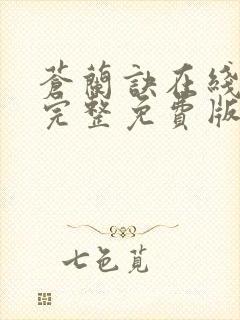 蒼蘭訣在綫
完整免費版
七色莧